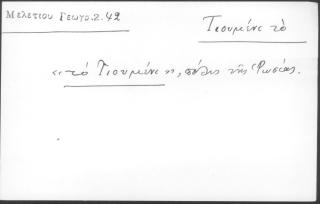 Μελετίου Γεωγρ. 2. 42
Τιουμένε τὸ
«τὸ Τιουμένε», πόλις τῆς Ῥωσίας.